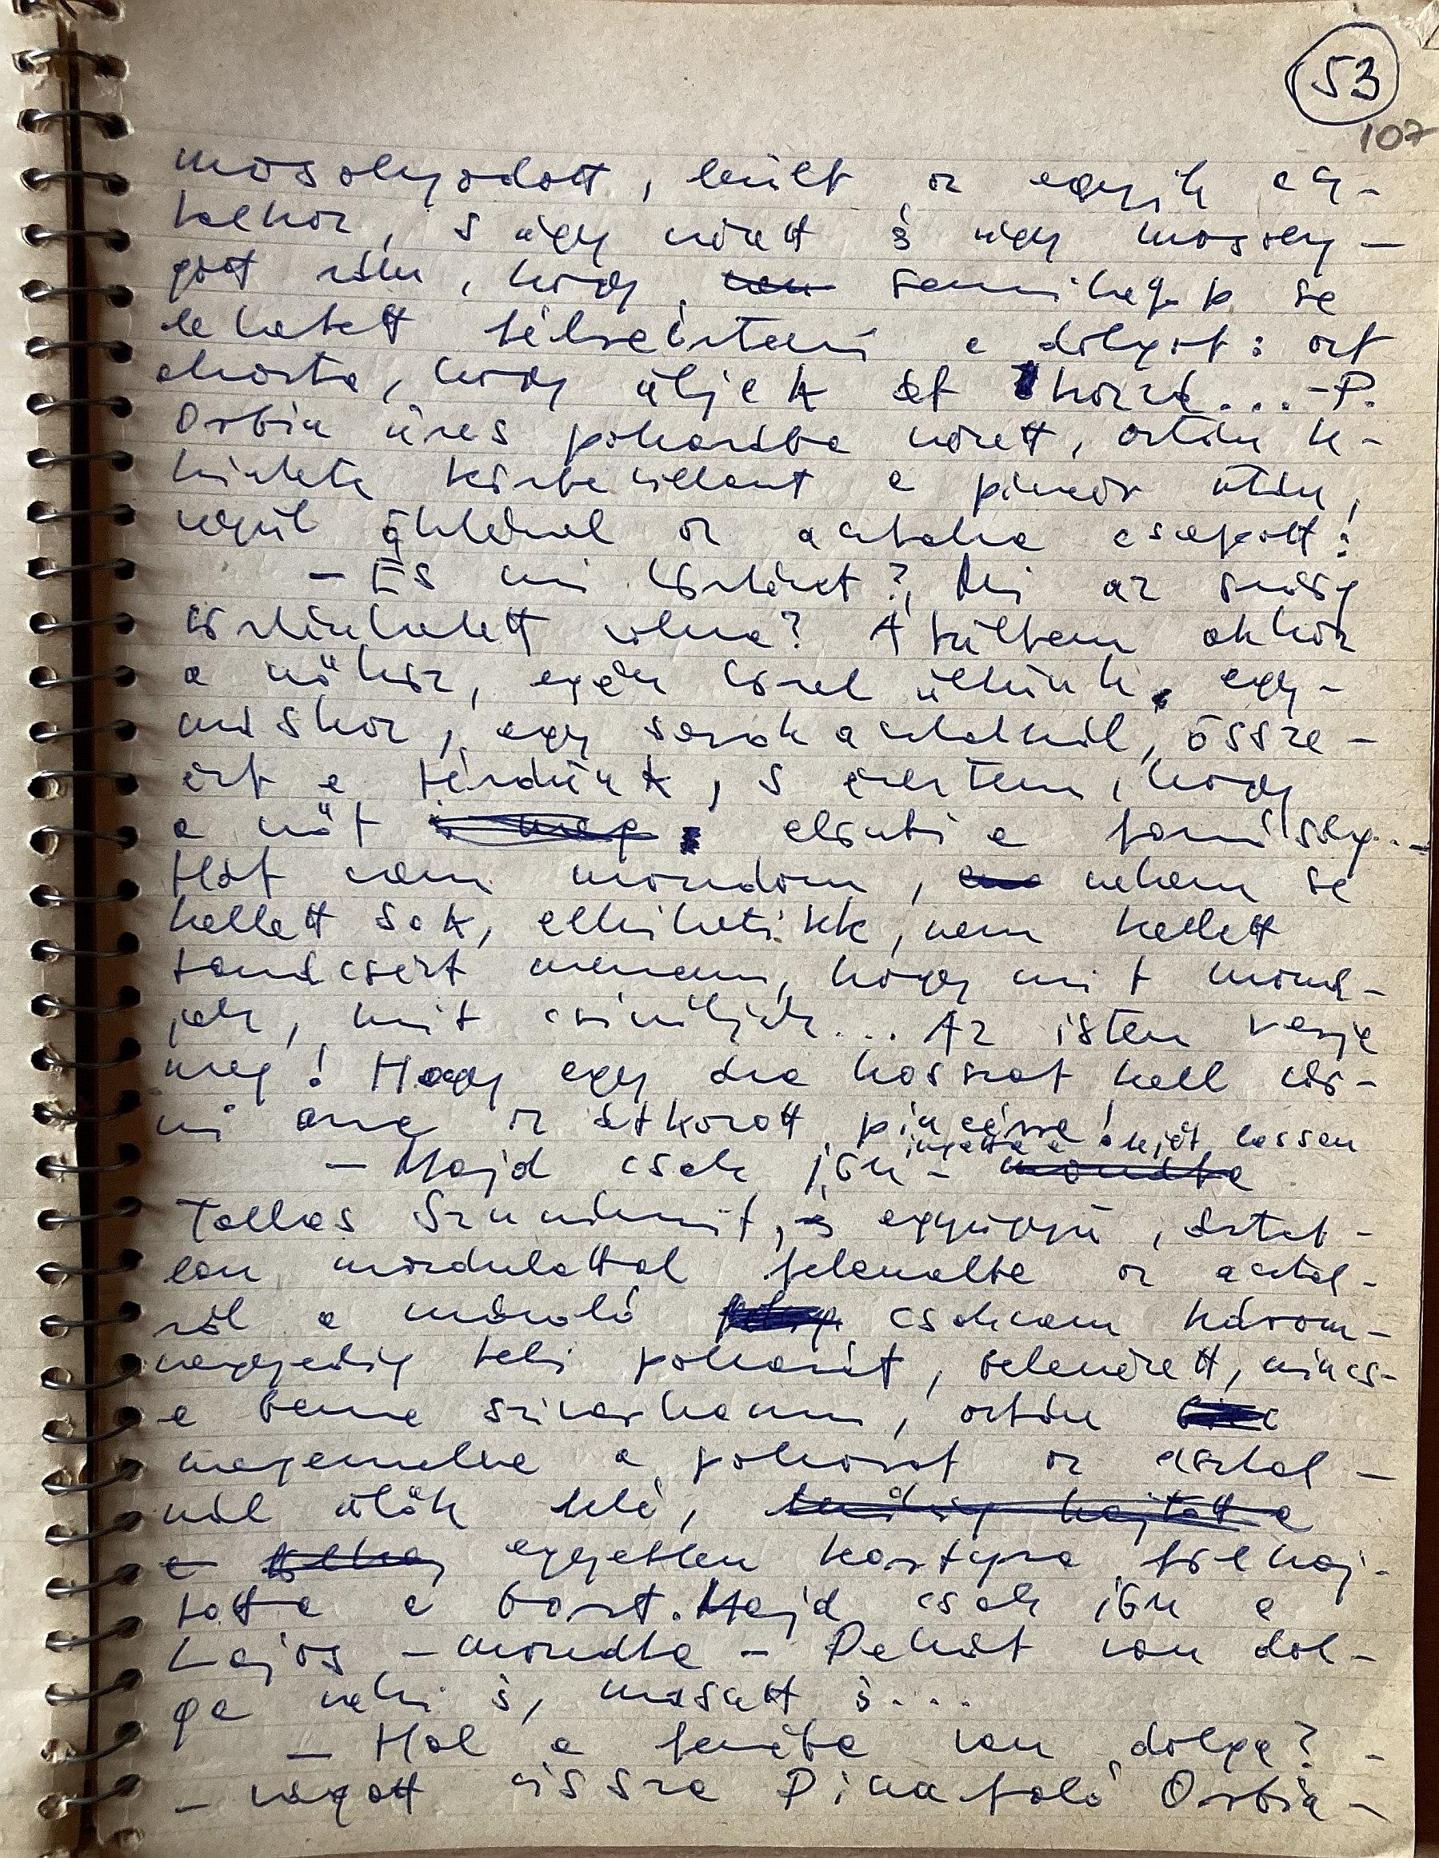 53
107
mosolyodott, leült az egyik asz-
talhoz, s úgy nézett s úgy mosoly-
gott rám, hogy semmiképp se
lehetett félreérteni a dolgot: azt
akarta, hogy üljek át hozzá... - P.
Orbán üres poharába nézett, aztán te-
kintete körbevillant a pincér után,
végül öklével az asztalra csapott:
- És mi történt? Mi az
történhetett volna? Átültem ahhoz
a nőhöz, egész közel ültünk egy-
máshoz, egy sarokasztalnál, össze-
ért a térdünk, s éreztem, hogy
a nőt elönti a forróság...
Hát nem mondom, nekem se
kellett sok, elhihetitek, nem kellett
tanácsért mennem, hogy mit mond-
jak, mit csináljak... Az isten verje
meg! Hogy egy óra hosszat kell vár-
ni arra az átkozott pincérre!
- Majd csak jön - ingatta a fejét lassan
Tallas , s egyúgyú, ártat-
lan mozdulattal felemelte az asztal-
ról a csaknem három-
negyedig teli poharát, belenézett, nincs-
e benne szivarhamu, aztán
megemelve a poharat az asztal-
nál ülők felé,
egyetlen kortyra felhaj-
totta a bort. Majd csak jön a
Lajos - mondta - Dehát van dol-
ga neki is, másutt is...
- Hol a fenébe van dolga? -
- vágott vissza Orbán-